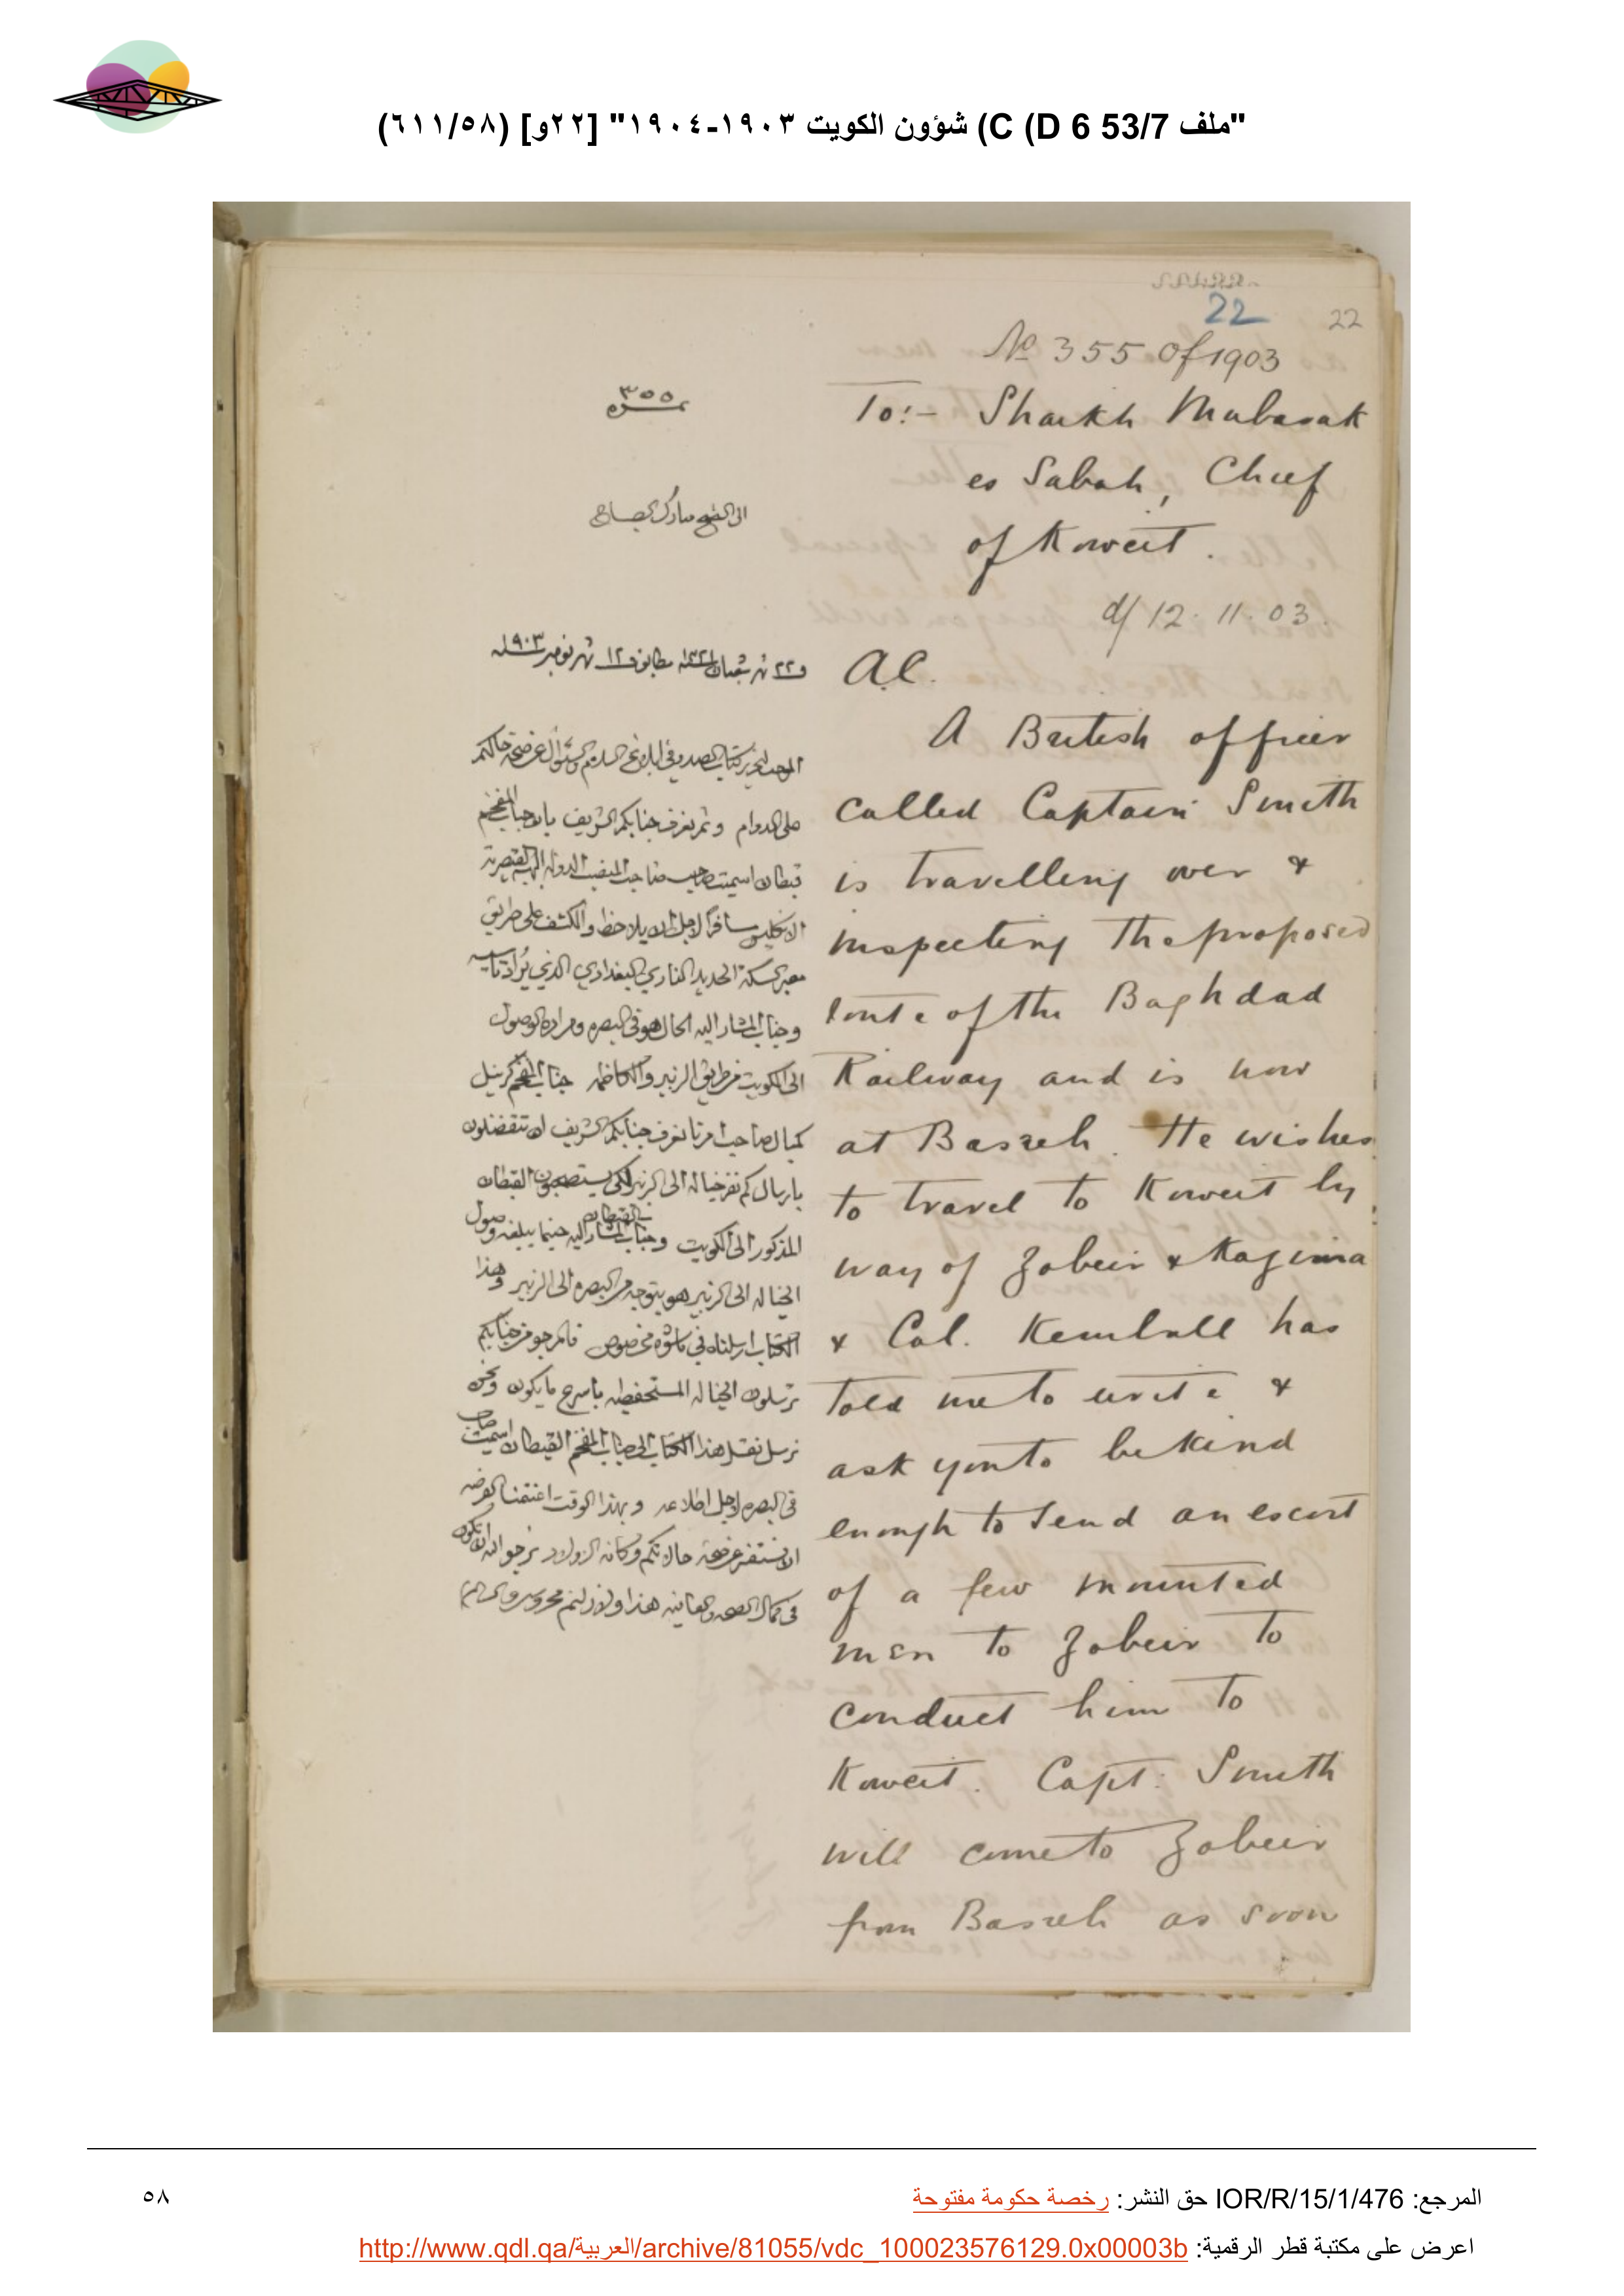 "ملف 53/7 C (D 6) شؤون الكويت ١٩٠٣-١٩٠٤" [٢٢و] (٦١١/٥٨)
22
22
No 355 of 1903
To:- Shaikh Mubarak
es Sabah, Chief
of Koweit.
d/ 12.11.03.
A.C.
A British officer
called Captain Smith
is travelling over &
inspecting the proposed
route of the Baghdad
Railway and is now
at Basreh. He wishes
to travel to Koweit by
way of Zobeir & Kazima
& Col. Kemball has
told me to write &
ask you to be kind
enough to send an escort
of a few mounted
men to Zobeir to
conduct him to
Koweit. Capt. Smith
will come to Zobeir
from Basreh as soon
نمره ٣٥٥
الى الشيخ مبارك الصباح
٢٢ شهر شعبان ١٣٢١ مطابق ١٢ شهر نومبر ١٩٠٣
على الدوام و نعرف جنابكم الشريف
قبطان اسميت صاحب
الانكليس على طريق
السكة الحديد البغدادي الذي
وجناب المشار اليه الحال هو في البصره ومراده الوصول
الى الكويت من طريق الزبير والكاظمه جناب المفخم كرنيل
كمبال صاحب امرنا نعرف جنابكم الشريف ان تتفضلون
بارسال كم نفر خياله الى الزبير لكي القبطان
المذكور الى الكويت وجناب المشار اليه حينما يبلغه وصول
الخياله الى الزبير هو يتوجه من البصره الى الزبير وهذا
الكتاب ارسلناه في مخصوص فالمرجو من جنابكم
ترسلون الخياله المستحفظه باسرع ما يكون ونحن
نرسل نقل هذا الكتاب الى جناب المفخم القبطان اسميت صاحب
في البصره لاجل اطلاعه و بهذا الوقت اغتنمنا الفرصه
في كمال الصحه والعافيه هذا ولازلتم محروسين والسلام
المرجع: IOR/R/15/1/476 حق النشر: رخصة حكومة مفتوحة
٥٨
اعرض على مكتبة قطر الرقمية: http://www.qdl.qa/العربية/archive/81055/vdc_100023576129.0x00003b